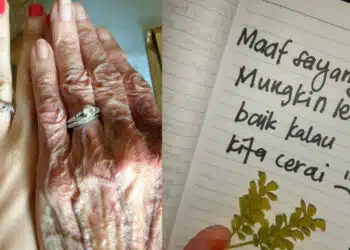 Maaf sayang
Mungkin le
baik kalau
kita cerai